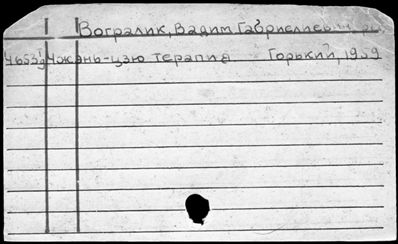 Вогралик, Вадим Габриелевич и др.
Чжэнь-цзю терапия Горький, 1959